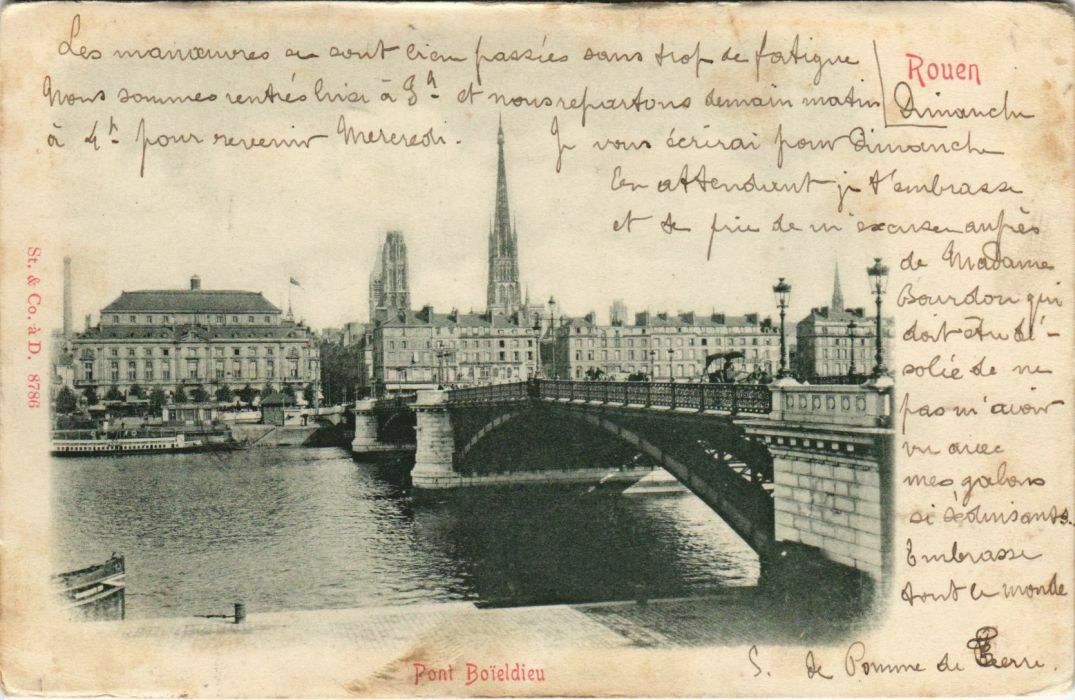 Rouen
Dimanche
Les manœuvres se sont bien passées sans trop de fatigue
Nous sommes rentrés hier à 3h et nous repartons demain matin
à 4h pour revenir Mercredi.
Je vous écrirai pour Dimanche
En attendant je t'embrasse
et te prie de m'excuser auprès
de Madame
Bourdon qui
doit être dé-
solée de ne
pas m'avoir
vu avec
mes galons
si séduisants.
Embrasse
tout le monde
S. de Pomme de Terre.
St. & Co. à D. 8786
Pont Boïeldieu